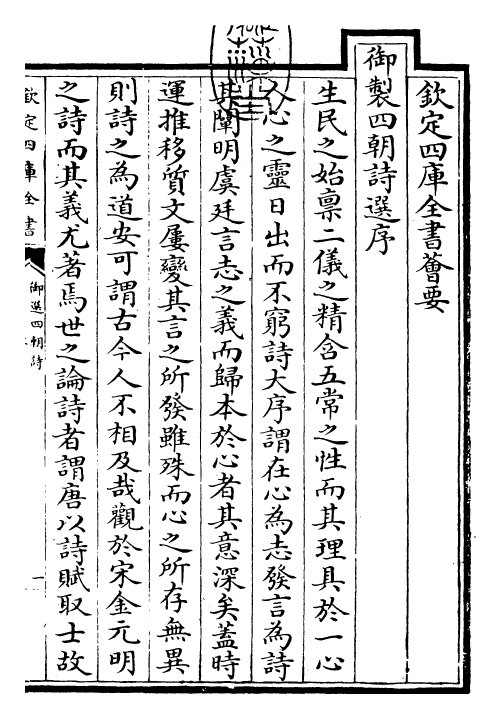 欽定四庫全書薈要
御製四朝詩選序
生民之始禀二儀之精含五常之性而其理具於一心
人心之靈日出而不窮詩大序謂在心為志發言為詩
其闡明虞廷言志之義而歸本於心者其意深矣葢時
運推移質文屢變其言之所發雖殊而心之所存無異
則詩之為道安可謂古今人不相及哉觀於宋金元明
之詩而其義尤著焉世之論詩者謂唐以詩賦取士故
欽定四庫全書
御選四朝詩
一